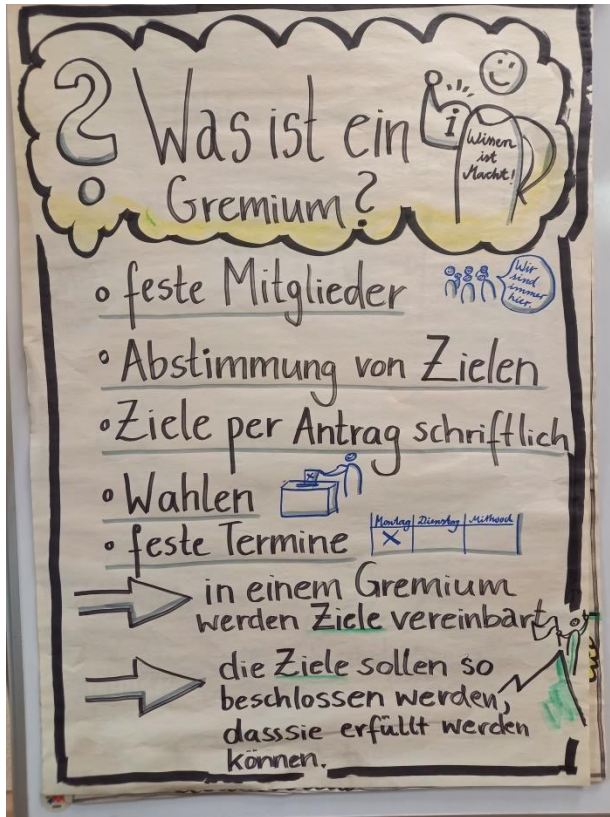 ? Was ist ein
Gremium?
i
Wissen
ist
Macht!
• feste Mitglieder
Wir
sind
immer
hier.
• Abstimmung von Zielen
• Ziele per Antrag schriftlich
• Wahlen
• feste Termine
Montag Dienstag Mittwoch
X
in einem Gremium
werden Ziele vereinbart
die Ziele sollen so
beschlossen werden,
dasssie erfüllt werden
können.